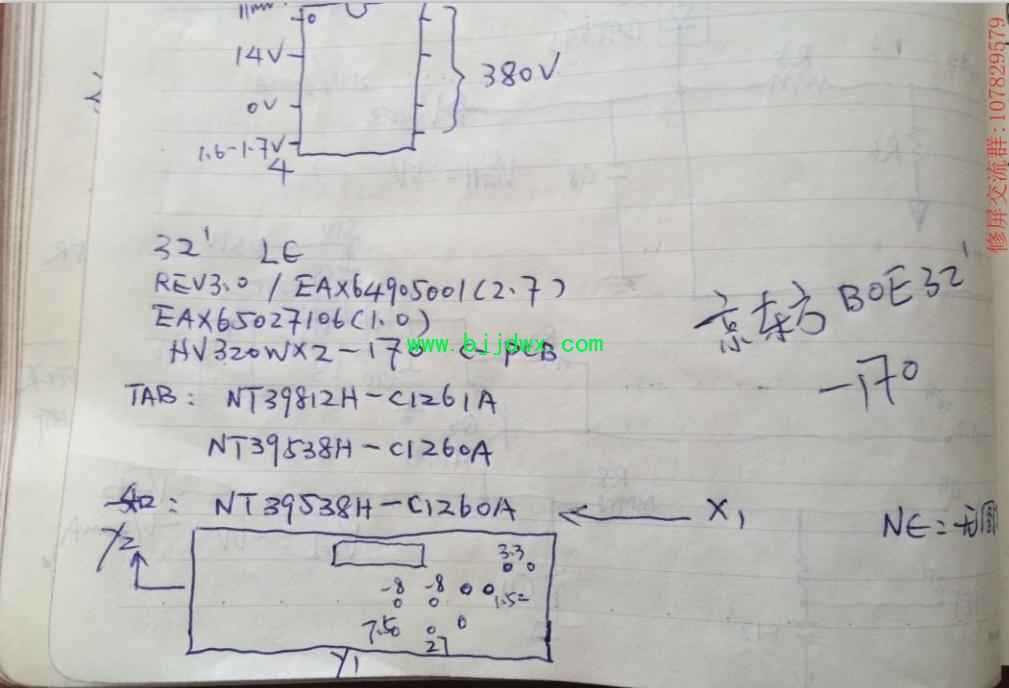 14V
0V
380V
1.6-1.7V
4
32' LE
REV3.0 / EAX64905001(2.7)
EAX65027106(1.0)
HV320WX2-170 C-PCB
www.bjjdwx.com
京东方 BOE 32'
-170
TAB: NT39812H-C1261A
NT39538H-C1260A
NT39538H-C1260A
X1
NE=无
Y2
3.3
-8 -8
1.52
7.50
27
Y1
修屏交流群:107829579